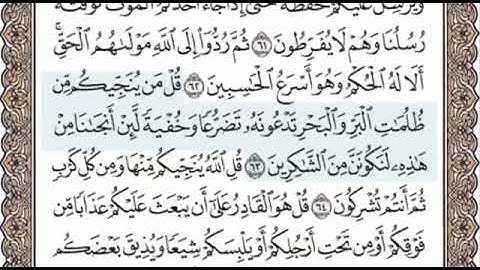 ويرسل عليكم حفظة حتى إذا جاء أحدكم الموت توفته
رُسُلُنَا وَهُمْ لَا يُفَرِّطُونَ ٦١ ثُمَّ رُدُّوٓا۟ إِلَى ٱللَّهِ مَوْلَىٰهُمُ ٱلْحَقِّ ۚ
أَلَا لَهُ ٱلْحُكْمُ وَهُوَ أَسْرَعُ ٱلْحَٰسِبِينَ ٦٢ قُلْ مَن يُنَجِّيكُم مِّن
ظُلُمَٰتِ ٱلْبَرِّ وَٱلْبَحْرِ تَدْعُونَهُۥ تَضَرُّعًا وَخُفْيَةً لَّئِنْ أَنجَىٰنَا مِنْ
هَٰذِهِۦ لَنَكُونَنَّ مِنَ ٱلشَّٰكِرِينَ ٦٣ قُلِ ٱللَّهُ يُنَجِّيكُم مِّنْهَا وَمِن كُلِّ كَرْبٍ
ثُمَّ أَنتُمْ تُشْرِكُونَ ٦٤ قُلْ هُوَ ٱلْقَادِرُ عَلَىٰٓ أَن يَبْعَثَ عَلَيْكُمْ عَذَابًا مِّن
فَوْقِكُمْ أَوْ مِن تَحْتِ أَرْجُلِكُمْ أَوْ يَلْبِسَكُمْ شِيَعًا وَيُذِيقَ بَعْضَكُم